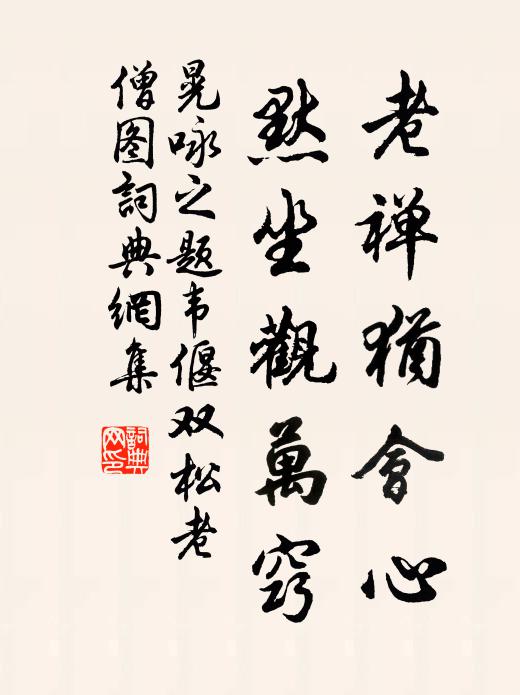 老禅猶會心
默坐觀萬窍
晃咏之题韦偃双松老
僧图詞典網集
詞典
网印